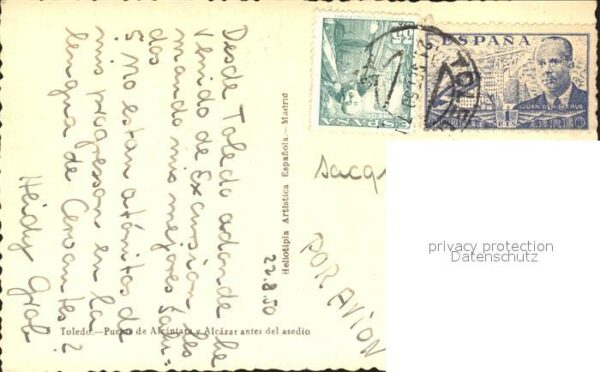 Desde Toledo adonde he
Venido de Excursion les
mando mis mejores salu-
dos
¿ No estan atónitos de
mis progresson en la
lengua de Cervantes ?
Heidy Gral
22.8.50
Toledo.—Puente de Alcántara y Alcázar antes del asedio
Heliotipia Artística Española.—Madrid
POR AVION
Sacq
ESPAÑA
CORREOS
35
ESPAÑA
JUAN DE LA CIERVA
CORREO 1 AEREO
privacy protection
Datenschutz